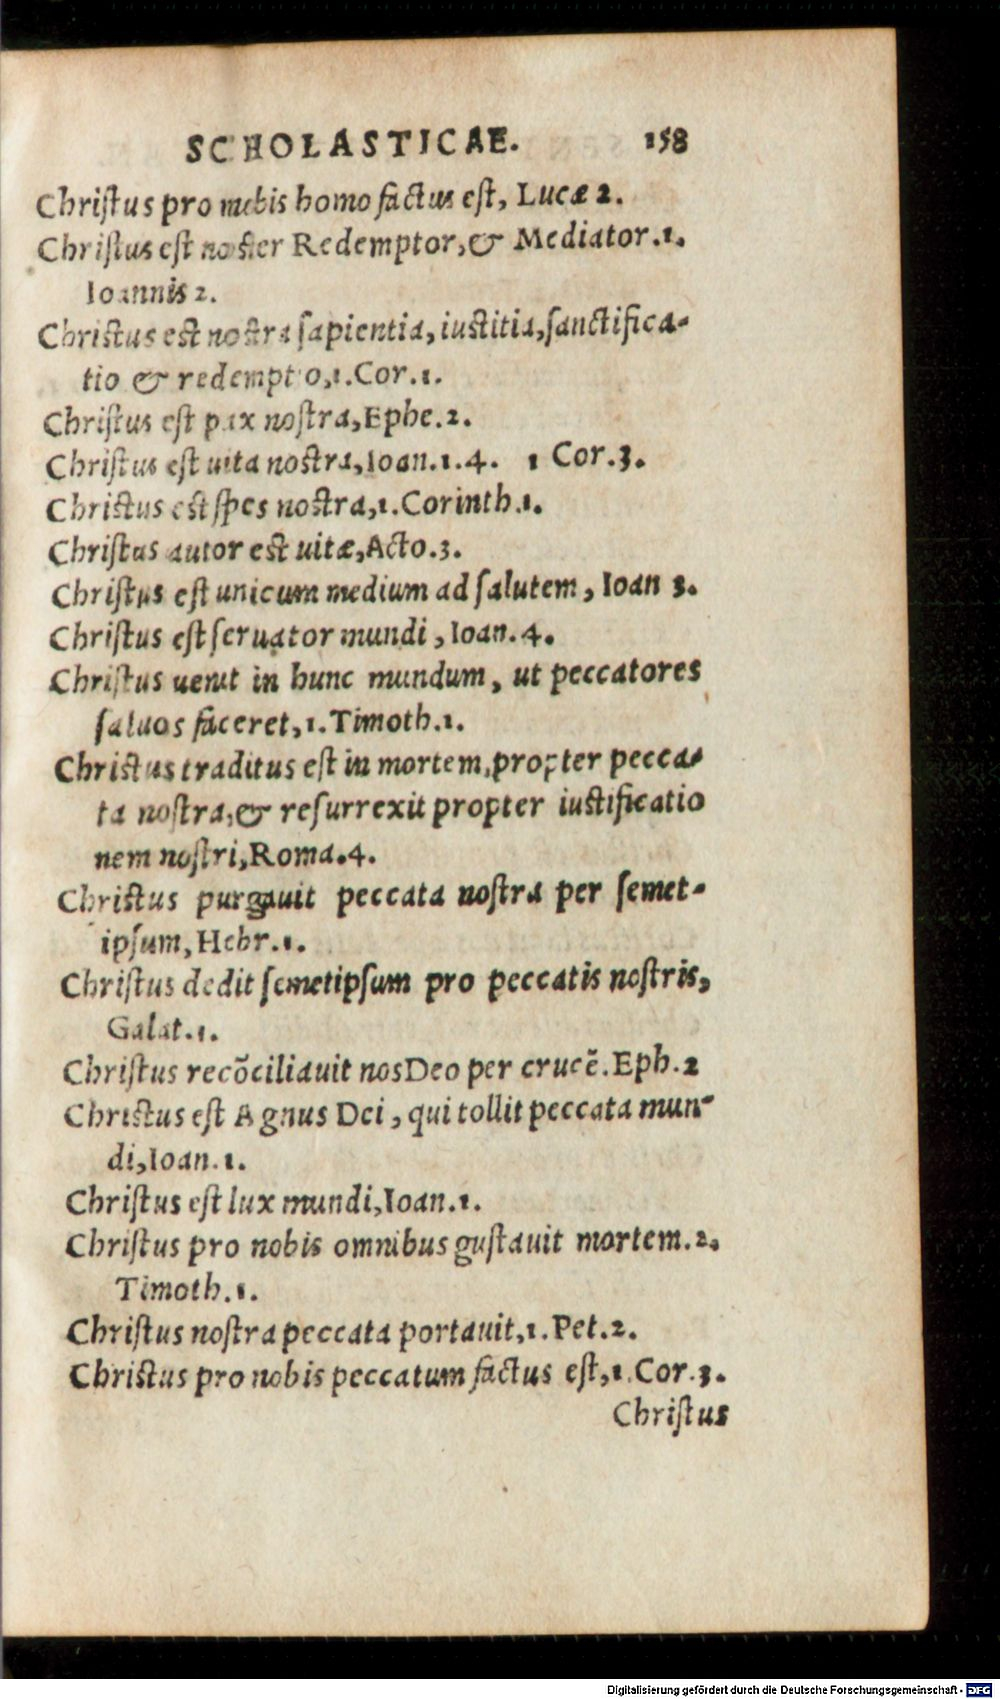 SCHOLASTICAE. 158
Christus pro nobis homo factus est, Lucæ 2.
Christus est noster Redemptor,& Mediator.1.
Ioannis 2.
Christus est nostra sapientia, iustitia,sanctifica-
tio & redemptio,1.Cor.1.
Christus est pax nostra,Ephe.2.
Christus est uita nostra,Ioan.1.4. 1 Cor.3.
Christus est spes nostra,1.Corinth.1.
Christus autor est uitæ,Acto.3.
Christus est unicum medium ad salutem, Ioan 3.
Christus est seruator mundi, Ioan.4.
Christus uenit in hunc mundum, ut peccatores
saluos faceret,1.Timoth.1.
Christus traditus est in mortem,propter pecca-
ta nostra,& resurrexit propter iustificatio
nem nostri,Roma.4.
Christus purgauit peccata nostra per semet-
ipsum,Hebr.1.
Christus dedit semetipsum pro peccatis nostris,
Galat.1.
Christus recõciliauit nos Deo per crucẽ.Eph.2
Christus est Agnus Dei, qui tollit peccata mun-
di,Ioan.1.
Christus est lux mundi,Ioan.1.
Christus pro nobis omnibus gustauit mortem.2.
Timoth.1.
Christus nostra peccata portauit,1.Pet.2.
Christus pro nobis peccatum factus est,1.Cor.3.
Christus
Digitalisierung gefördert durch die Deutsche Forschungsgemeinschaft - DFG